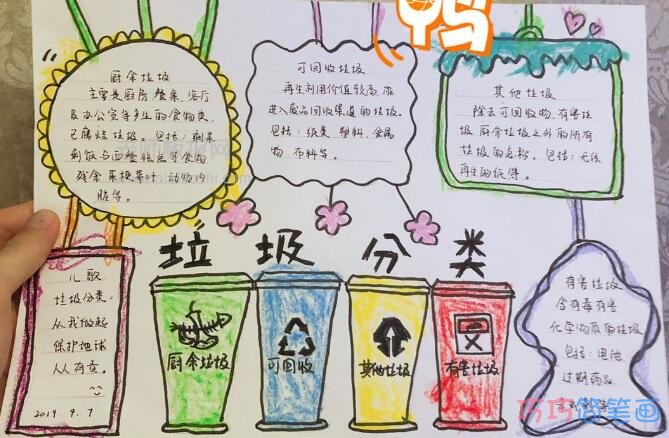 鸭
厨余垃圾
主要是厨房、餐桌、客厅
及办公室等产生的食物类
已腐烂垃圾。包括：剩菜
剩饭与西餐糕点等食物
残余菜梗菜叶、动物内
脏等。
可回收垃圾
再生利用价值较高，能
进入废品回收渠道的垃圾。
包括：纸类 塑料、金属
物 布料等。
其他垃圾
除去可回收物、有害垃
圾 厨余垃圾之外的所有
垃圾的总称。包括：无法
再生的纸等。
垃圾分类
儿歌
垃圾分类，
从我做起
保护地球
人人有责。
2019.9.7
厨余垃圾
可回收
其他垃圾
有害垃圾
有害垃圾
含有毒有害
化学物质的垃圾
包括：电池
过期药品
巧巧简笔画